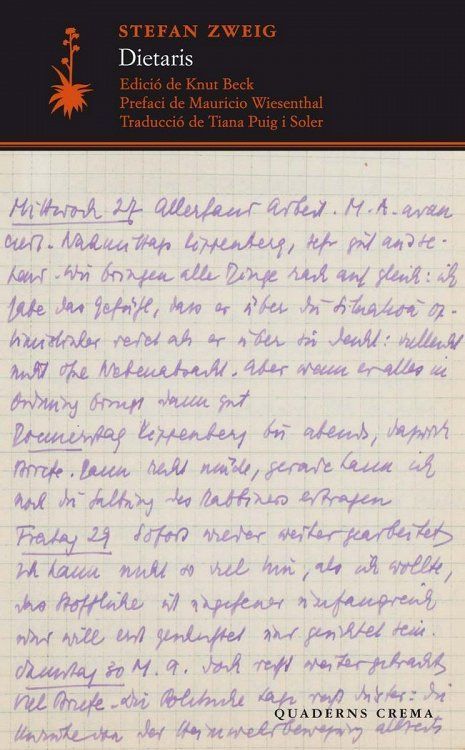 STEFAN ZWEIG
Dietaris
Edició de Knut Beck
Prefaci de Mauricio Wiesenthal
Traducció de Tiana Puig i Soler
Mittwoch 27 Allerhand Arbeit. M.A. avan
ciert. Nachmittags Kippenberg, sehr gut
Wir bringen alle Dinge rasch auf gleich: ich
habe das Gefühl, dass er über die Situation op-
timistischer redet als er über sie denkt: vielleicht
nicht ohne Nebenabsicht. Aber wenn er alles in
Ordnung bringt dann gut
Donnerstag Kippenberg bis abends, dazwisch
Briefe. Dann recht müde, gerade kann ich
noch die des Rabbiners ertragen
Freitag 29 Sofort wieder weitergearbeitet
ich kann nicht so viel hin, als ich wollte,
das Stoffliche ist ungeheuer umfangreich
und will erst nur gesichtet sein.
Samstag 30 M.A. doch weitergebracht
viel Briefe - die Politische Lage düster: die
von der Heimwehrbewegung
QUADERNS CREMA